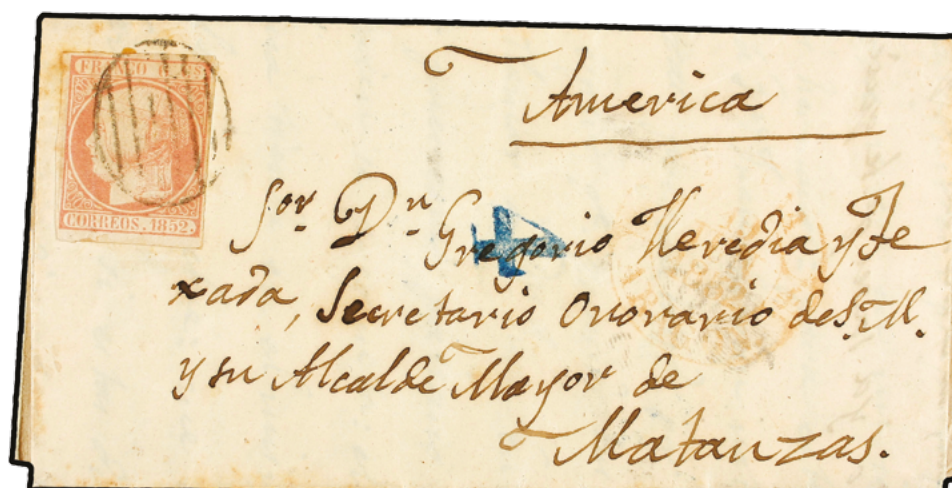 FRANCO 6 CS
CORREOS. 1852.
America
Sor. Dn. Gregorio Heredia y Te
xada, Secretario Onorario de S. M.
y su Alcalde Mayor de
Matanzas.
4